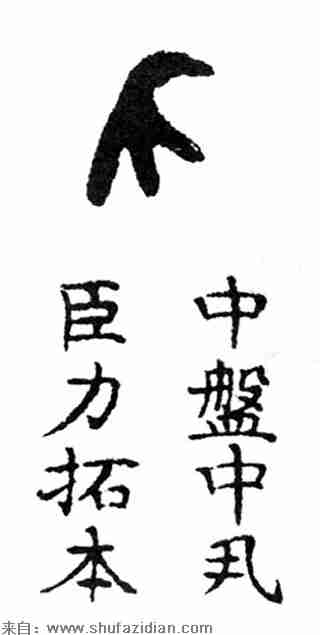 中盤中丮
臣力拓本
来自：www.shufazidian.com